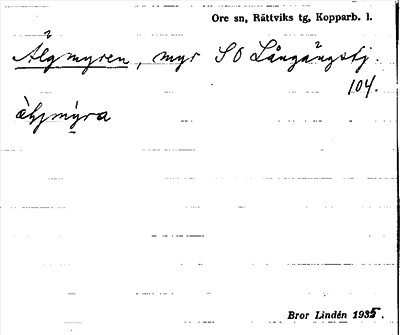 Ore sn, Rättviks tg, Kopparb. l.
Älgmyren, myr SO Långängstj.
104.
älgmýra
Bror Lindén 1935.